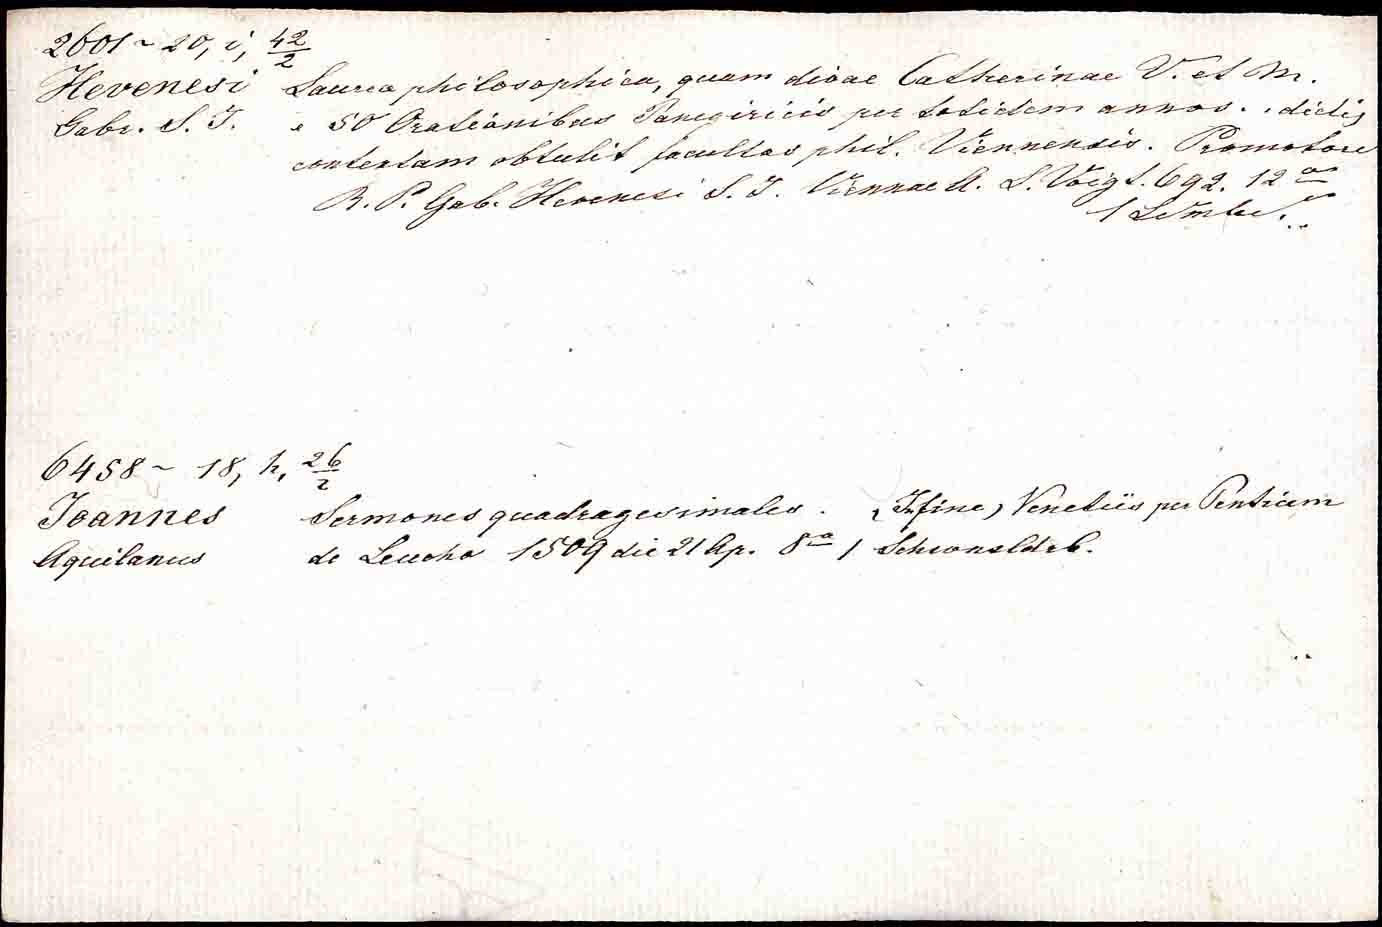 2601 ~ 20, i, 42/2
Hevenesi Laurea philosophica, quam divae Catherinae V. et M.
Gabr. S. J. e 50 Orationibus Panegiricis per totidem annos . . dictis
contextam obtulit facultas phil. Viennensis. Promotore
R. P. Gab. Hevenesi S. J. Viennae A. L. Voigt. 692. 12°
1 Lembr.
6458 ~ 18, h, 26/2
Joannes Sermones quadragesimales. (In fine) Venetiis per Pentium
Aquilanus de Leucho 1509 die 21 Ap. 8° /